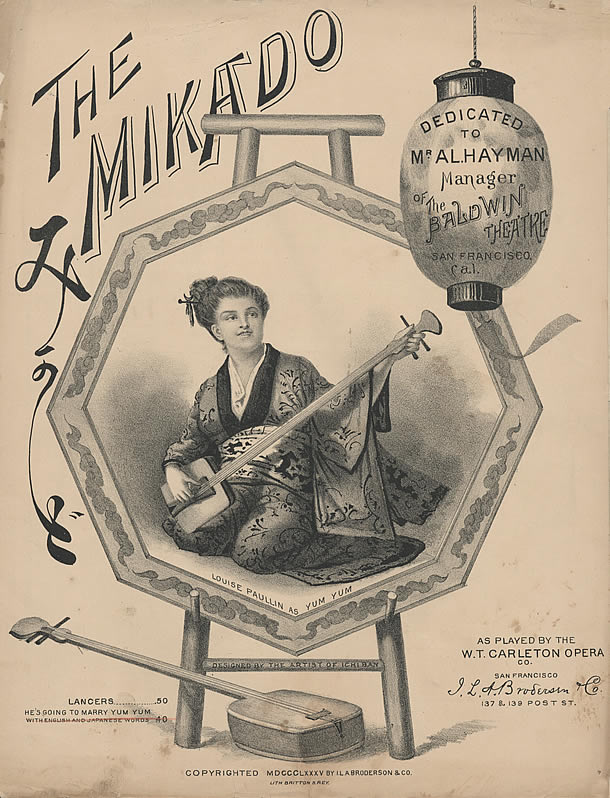 THE
MIKADO
みかど
DEDICATED
TO
MR AL. HAYMAN
Manager
OF The
BALDWIN
THEATRE
SAN FRANCISCO,
Cal.
LOUISE PAULLIN AS YUM YUM
DESIGNED BY THE ARTIST OF ICHIBAN
AS PLAYED BY THE
W. T. CARLETON OPERA
CO.
SAN FRANCISCO
I. L. A. Brodersen & Co.
137 & 139 POST ST.
LANCERS..............50
HE'S GOING TO MARRY YUM YUM
WITH ENGLISH AND JAPANESE WORDS 40
COPYRIGHTED MDCCCLXXXV BY I. L. A BRODERSON & CO.
LITH BRITTON & REY.